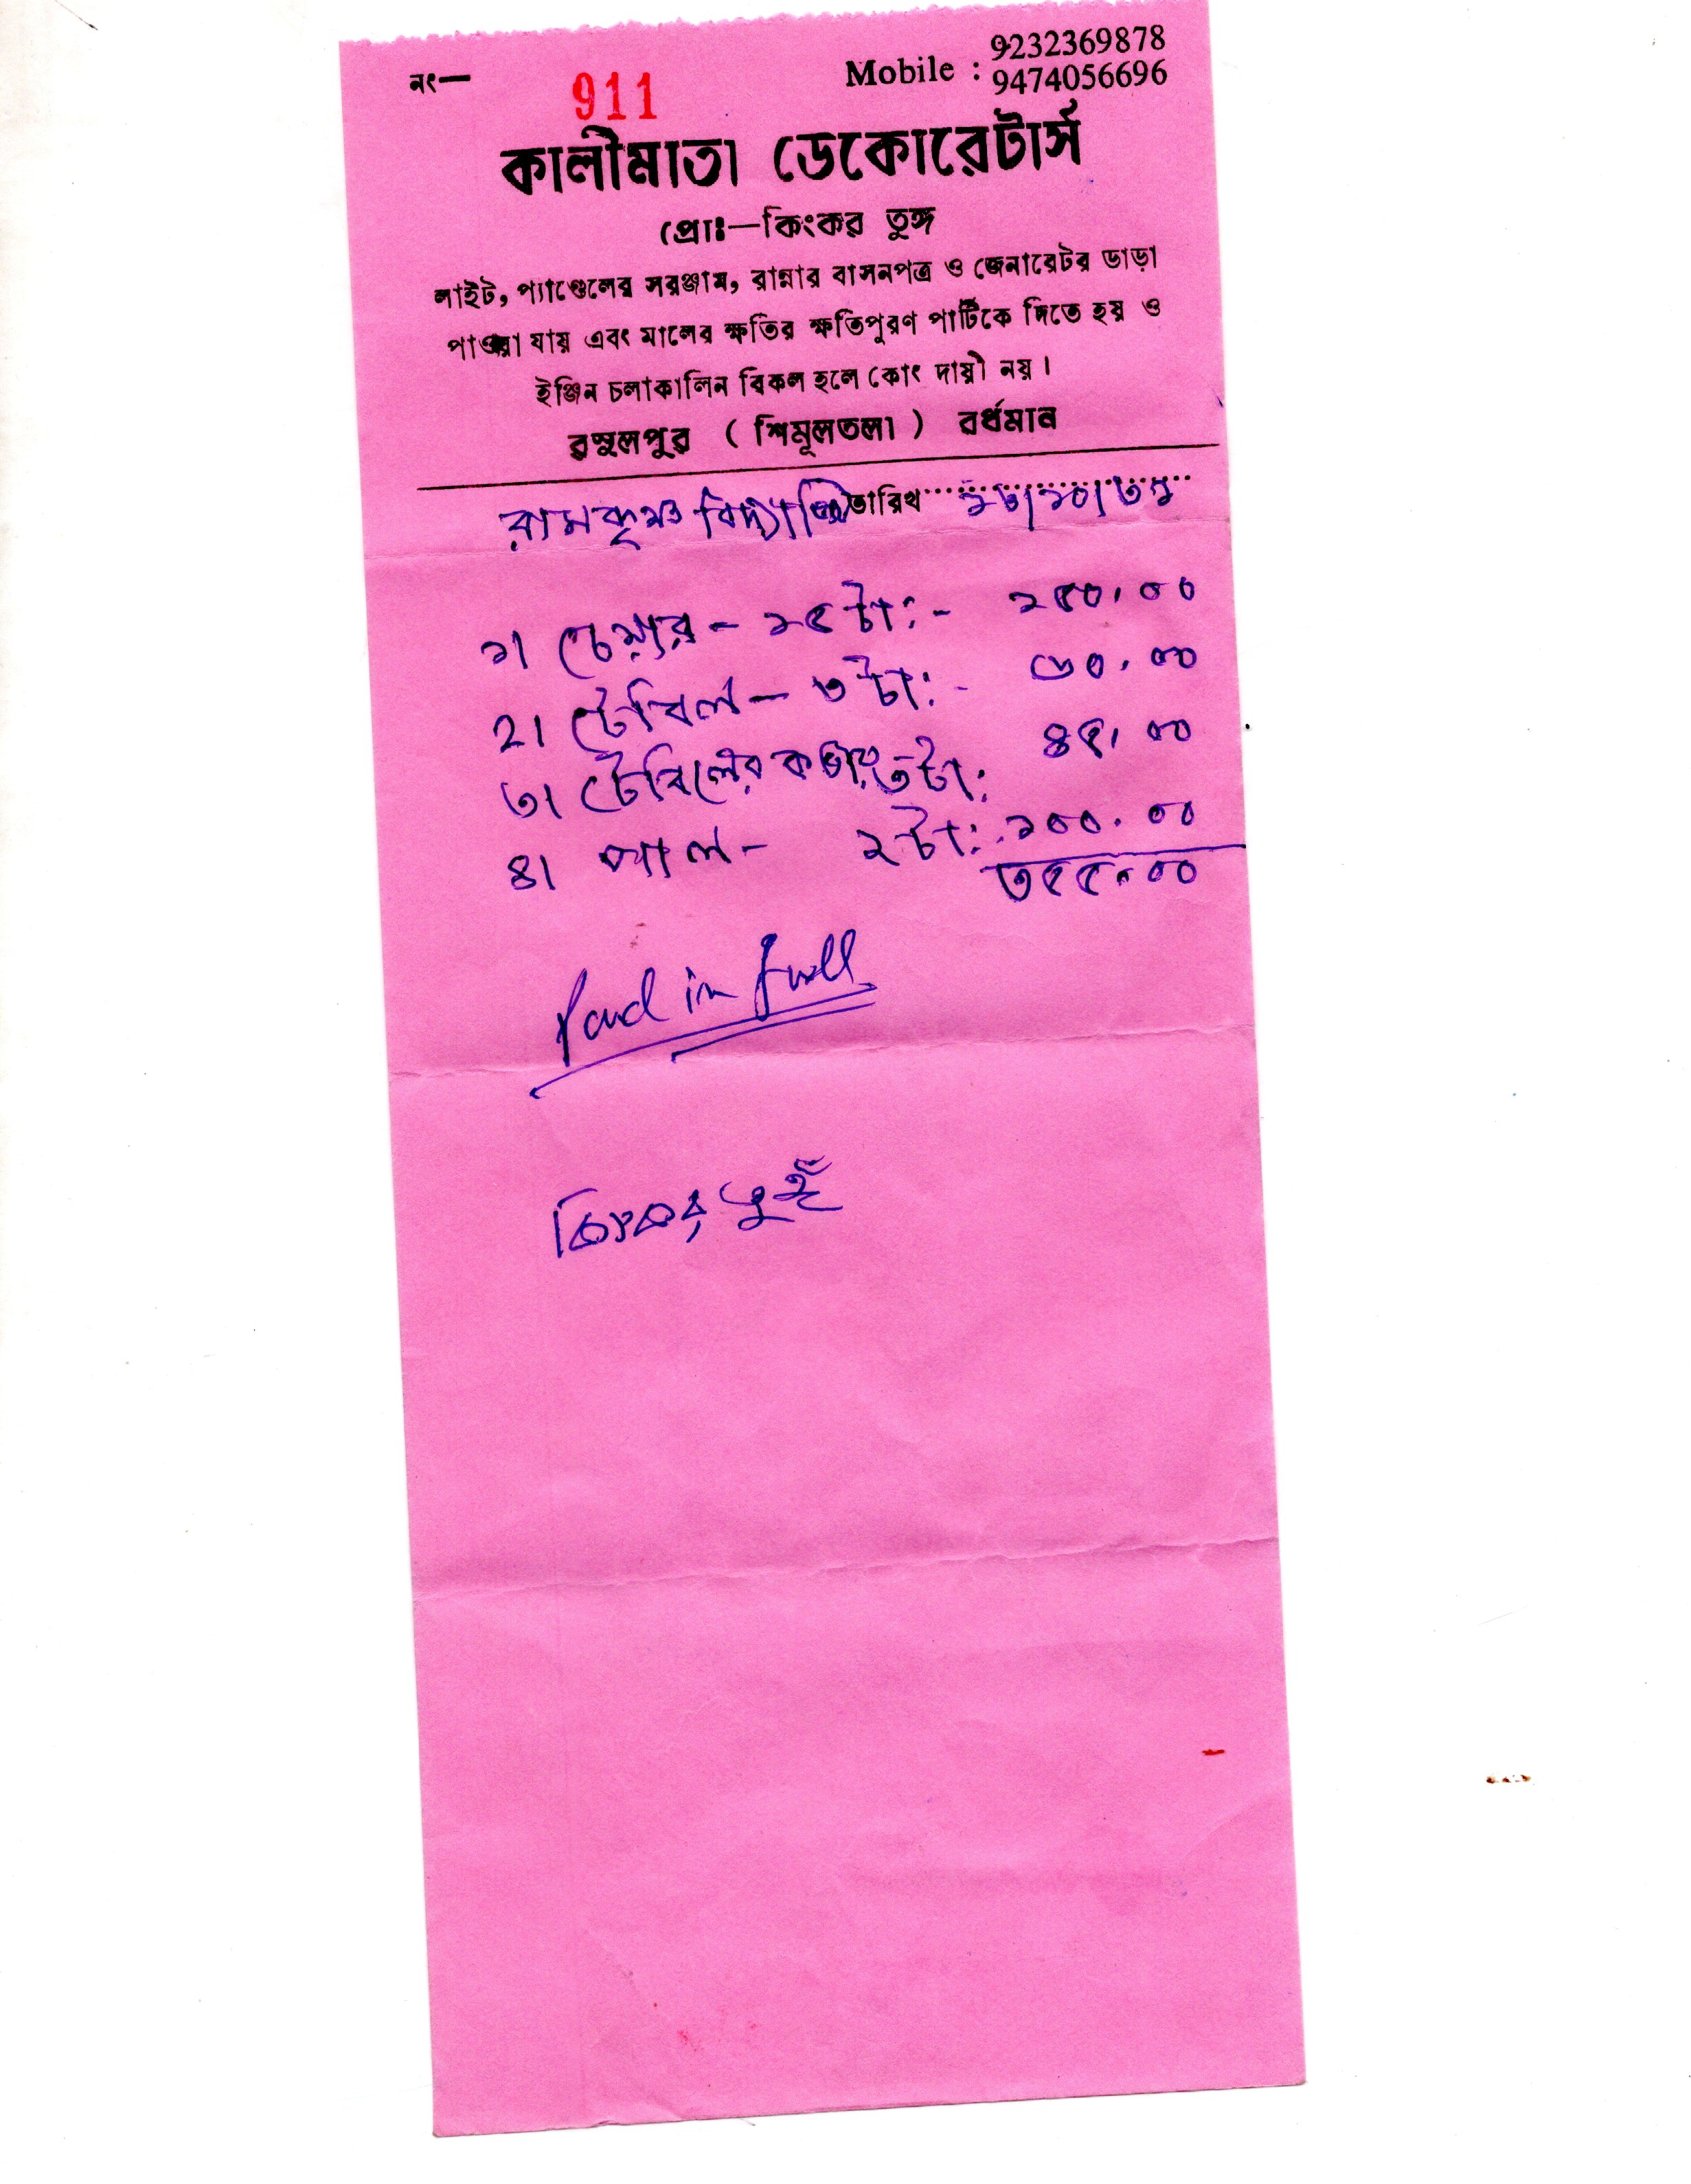 নং— 911 Mobile : 9232369878
9474056696
কালীমাতা ডেকোরেটার্স
প্রোঃ—কিংকর তুঙ্গ
লাইট, প্যাণ্ডেলের সরঞ্জাম, রান্নার বাসনপত্র ও জেনারেটর ভাড়া
পাওয়া যায় এবং মালের ক্ষতির ক্ষতিপুরণ পার্টিকে দিতে হয় ও
ইঞ্জিন চলাকালিন বিকল হলে কোং দায়ী নয়।
রসুলপুর ( শিমূলতলা ) বর্ধমান
রামকৃষ্ণ তারিখ
১। চেয়ার – ১৫ টা:- ১৫০.০০
২। টেবিল – ৩ টা:- ৬০.০০
৩। টেবিলের কভার ৩টা: ৪৫.০০
৪। পাল – ১টা: ১০০.০০
৩৫৫.০০
Paid in full
কিংকর তুঙ্গ